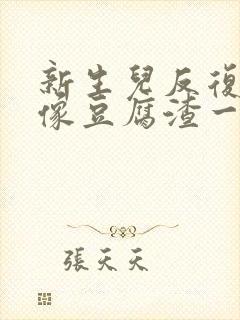 新生兒反復
像豆腐渣一
張天天